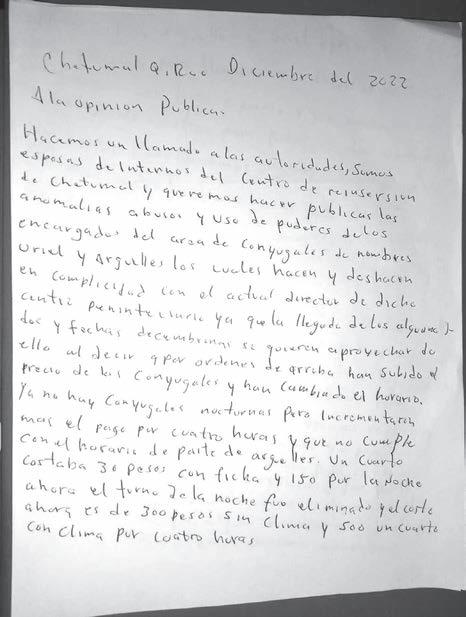 Chetumal Q. Roo Diciembre del 2022
A la opinion Publica.
Hacemos un llamado a las autoridades, Somos
esposas de Internos del Centro de reinsersion
de Chetumal y queremos hacer publicas las
anomalias abusos y uso de puderes de los
encargados del area de Conyugales de nombres
Uriel y Arguelles los cuales hacen y deshacen
en complicidad con el actual director de dicho
centro penintenciario ya que la llegada de los
dos y fechas decembrinas se quieren aprovechar de
ello al decir q por ordenes de arriba han subido el
precio de las Conyugales y han cambiado el horario.
Ya no hay Conyugales nocturnas pero incrementaron
mas el pago por cuatro horas y que no cumple
con el horario de parte de arguelles. Un Cuarto
costaba 30 pesos con ficha y 150 por la noche
ahora el turno de la noche fue eliminado y el costo
ahora es de 300 pesos sin clima y 500 un cuarto
con clima por cuatro horas